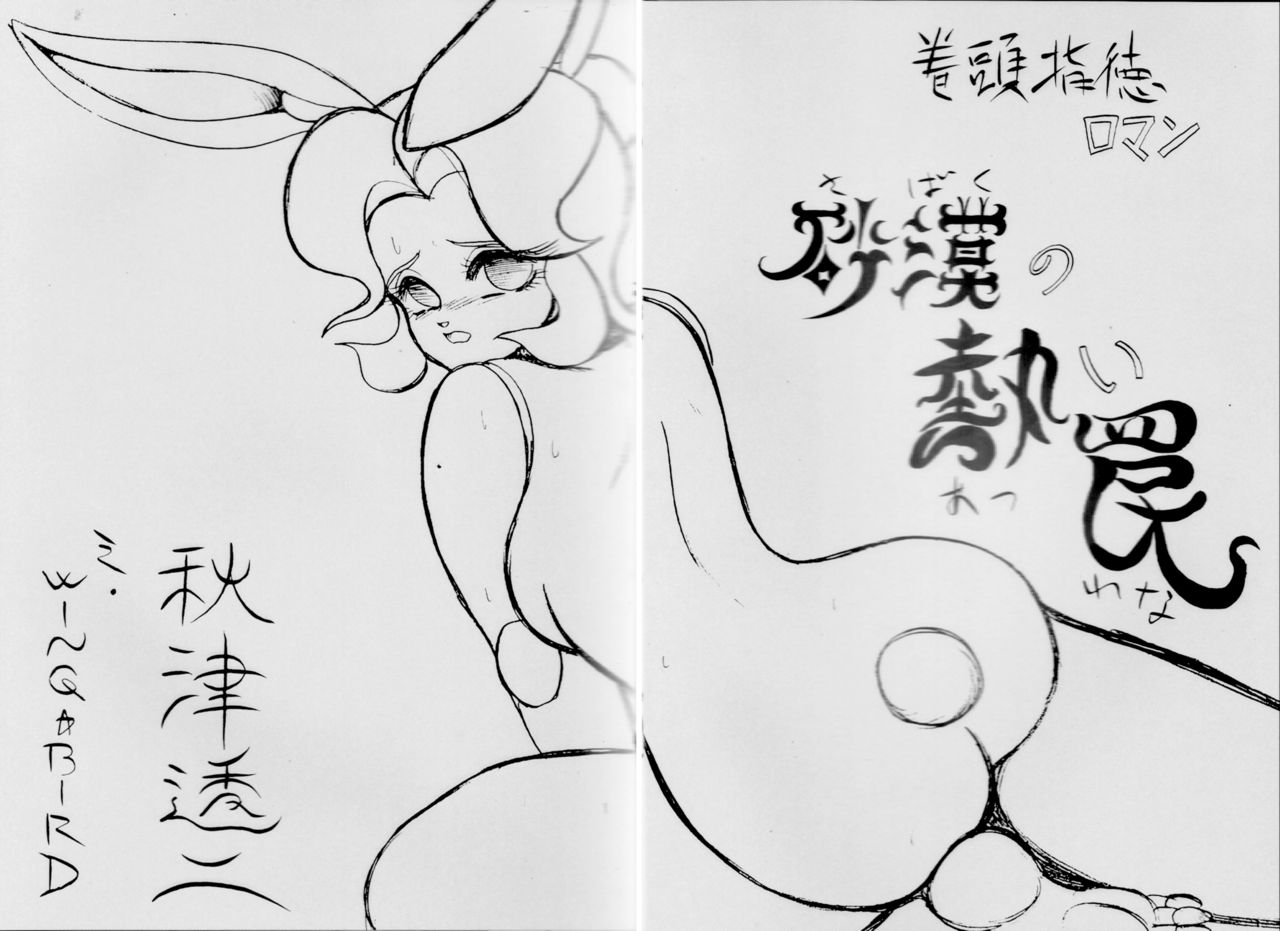 巻頭指徳
ロマン
さばく
砂漠の
熱い
あつ
罠
わな
秋津透二
WING☆BIRD